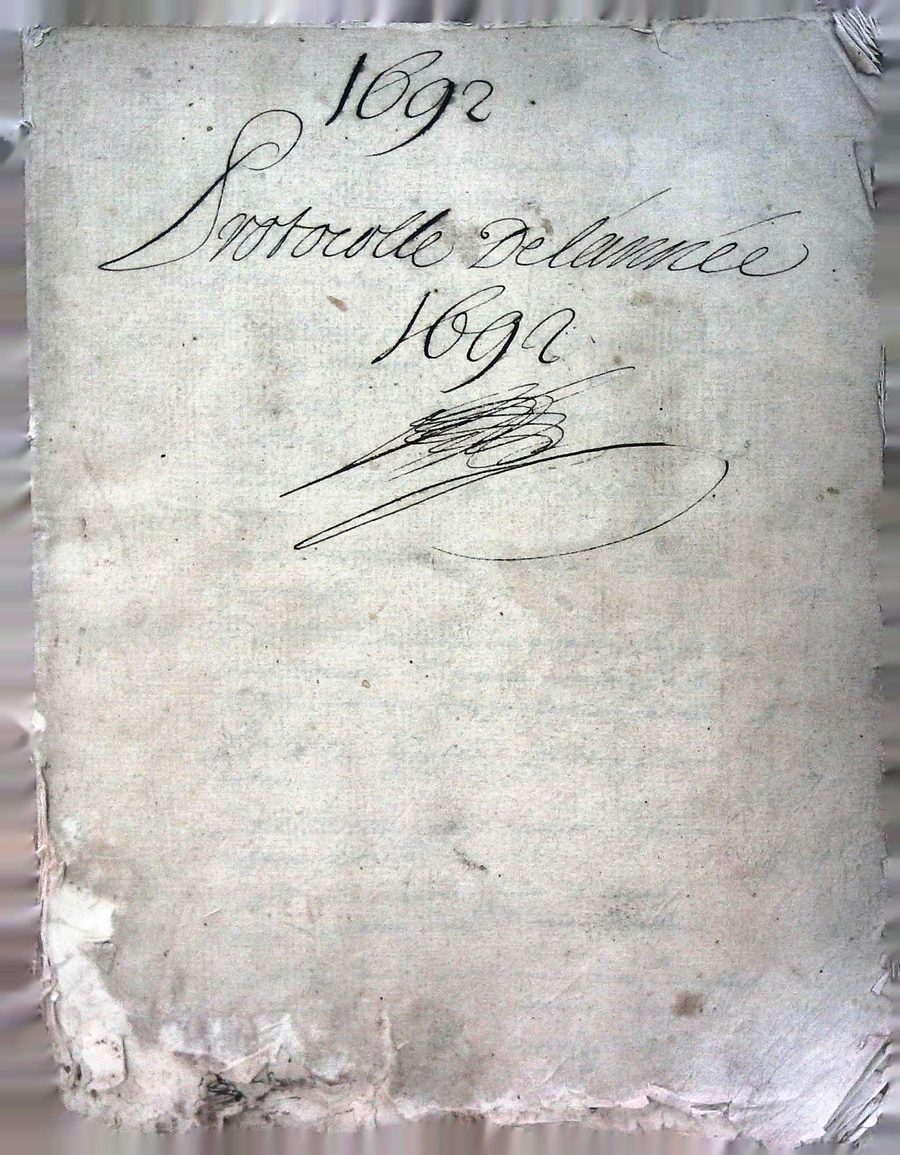 1692
Protocolle De lánnée
1692